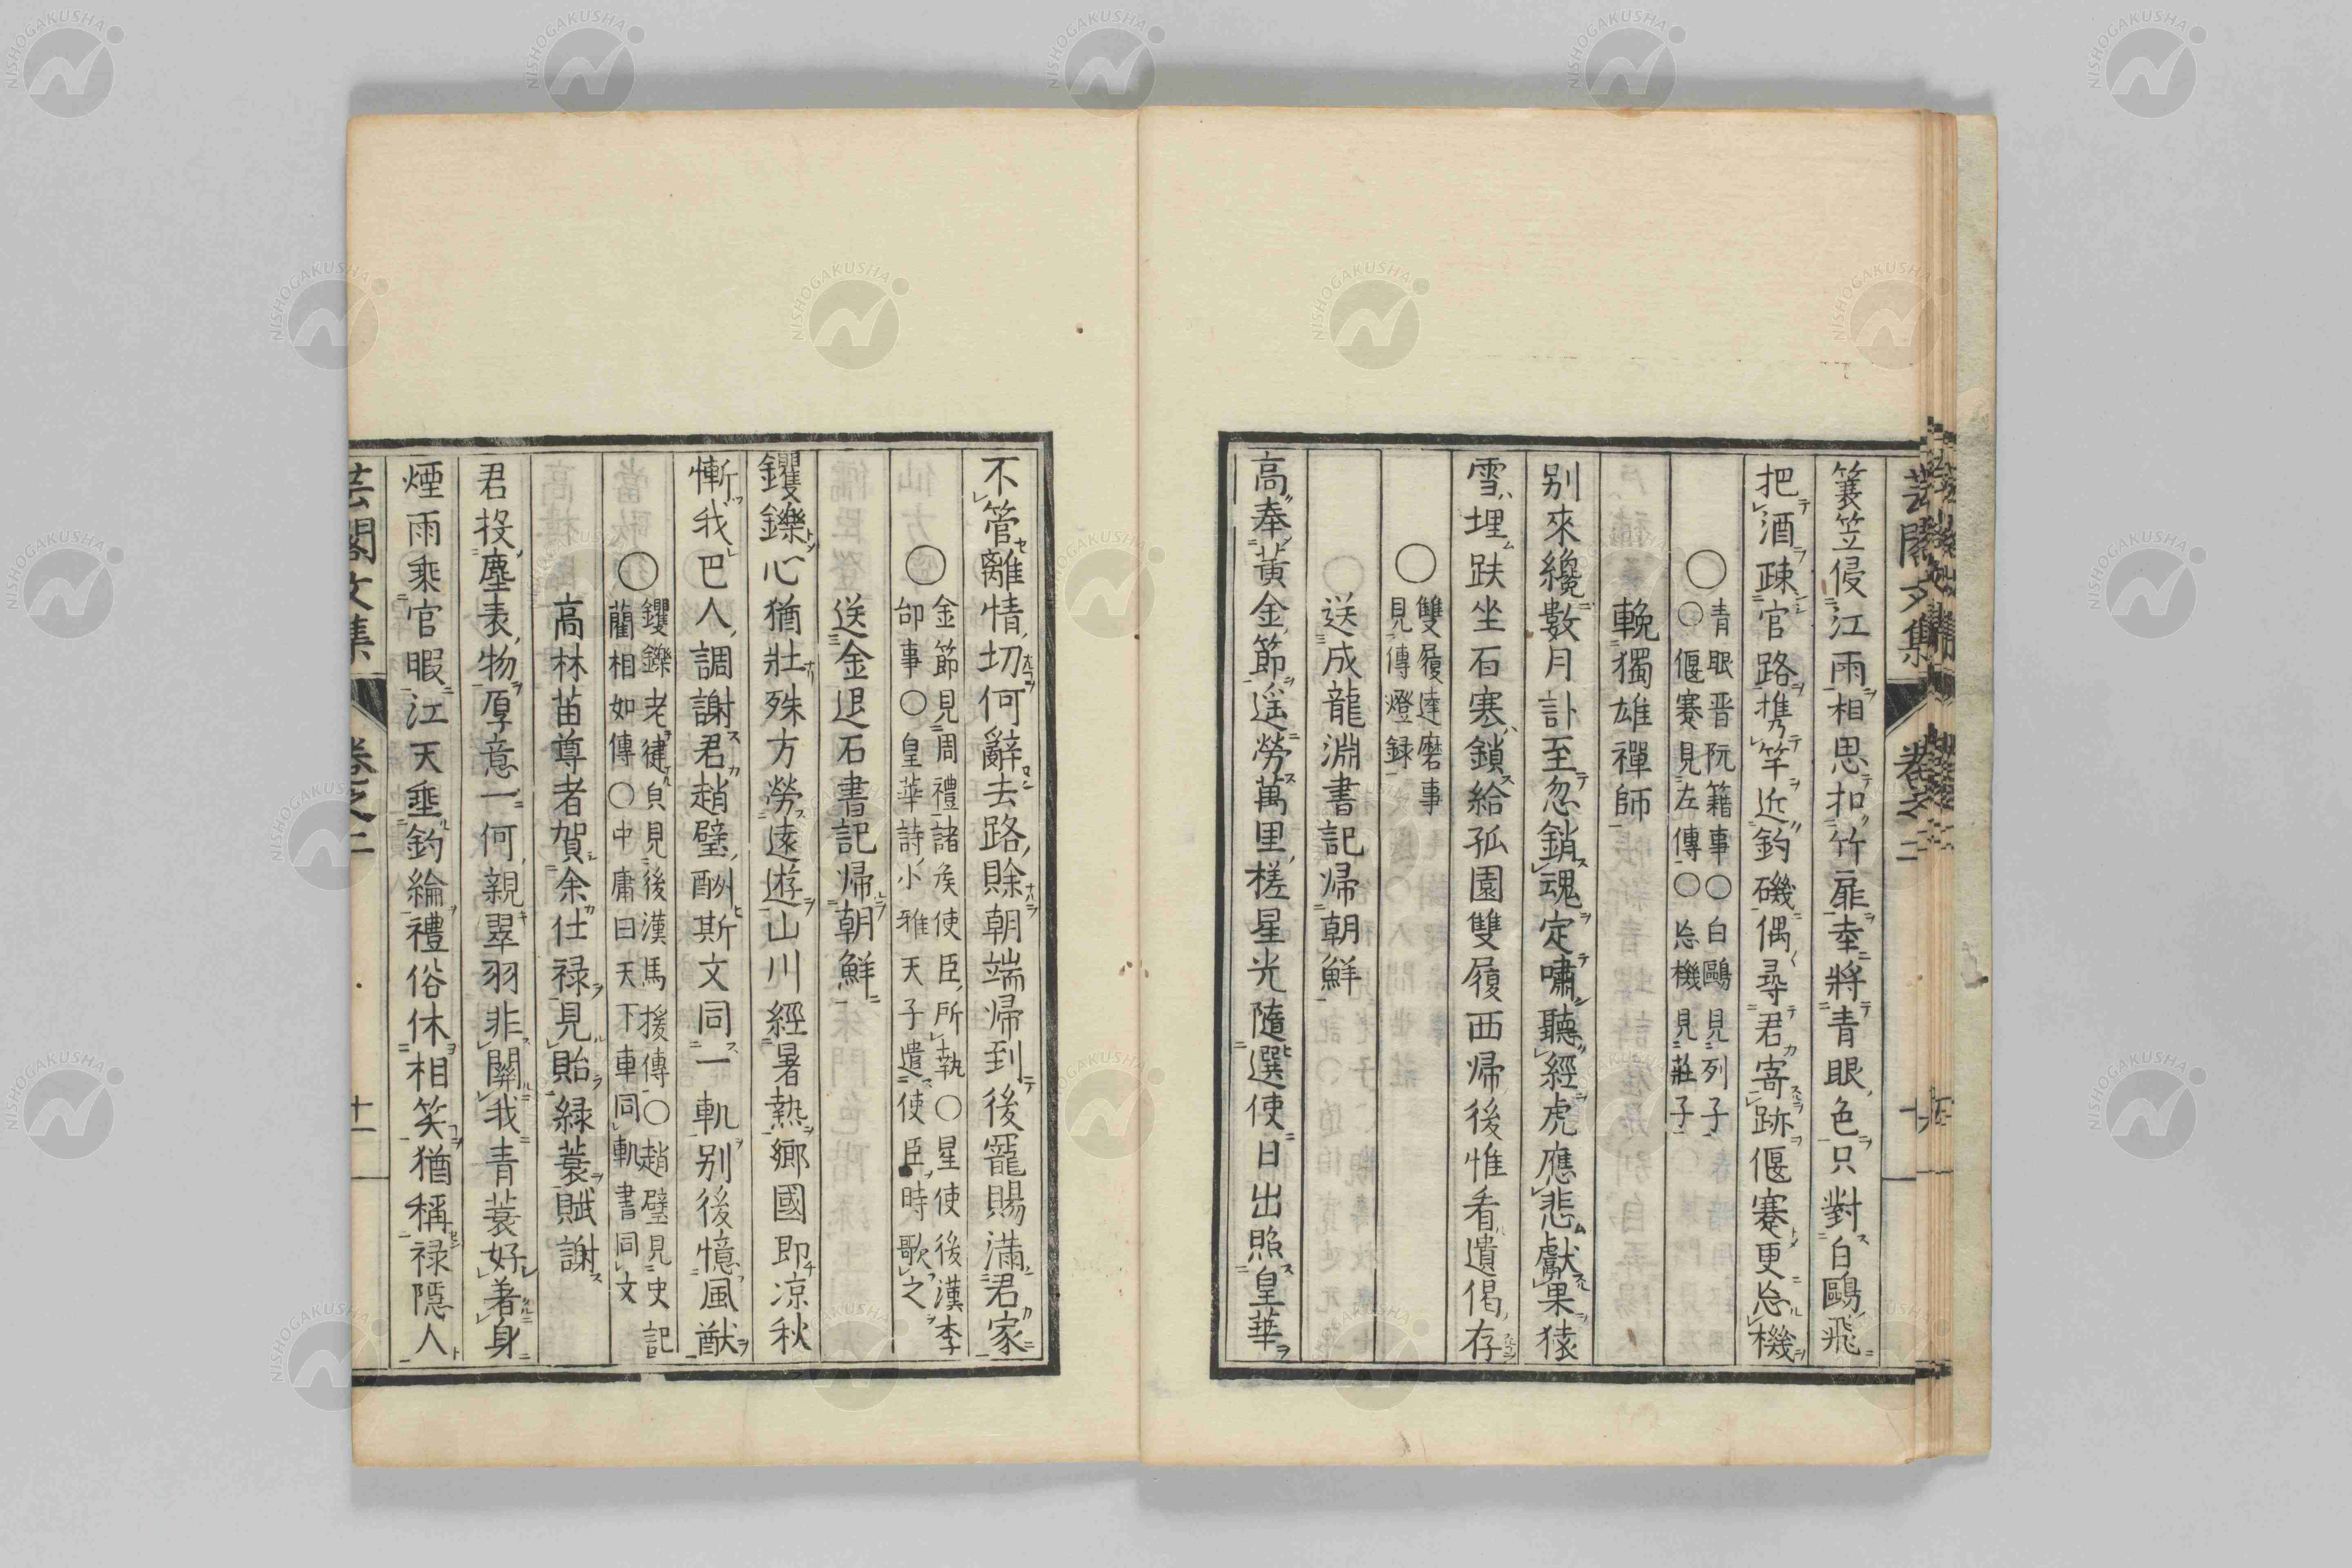 芸閣文集 卷之二
蓑笠侵江雨相思扣竹扉幸將青眼色只對白鷗飛
把酒疎官路携竿近釣磯偶尋君寄跡偃蹇更忘機
○青眼晋阮籍事○白鷗見列子
○偃蹇見左傳○忘機見莊子
輓獨雄禪師
别來纔數月訃至忽銷魂定嘯聽經虎應悲獻果猿
雪埋趺坐石寒鎖給孤園雙履西帰後惟看遺偈存
○雙履達磨事
見傳燈録
送成龍淵書記帰朝鮮
高奉黄金節遥勞萬里槎星光隨選使日出照皇華
不管離情切何辭去路賖朝端帰到後寵賜滿君家
○金節見周禮諸矦使臣所執○星使後漢李
郃事○皇華詩小雅天子遣使臣時歌之
送金退石書記帰朝鮮
钁鑠心猶壯殊方勞遠遊山川經暑熱鄉國即凉秋
慚我巴人調謝君趙璧酬斯文同一軌别後憶風猷
○钁鑠老健皃見後漢馬援傳○趙璧見史記
藺相如傳○中庸曰天下車同軌書同文
高林苗尊者賀余仕禄見貽緑蓑賦謝
君投塵表物厚意一何親翠羽非關我青蓑好著身
煙雨乘官暇江天垂釣綸禮俗休相笑猶稱禄隱人
芸閣文集 卷之二 十一